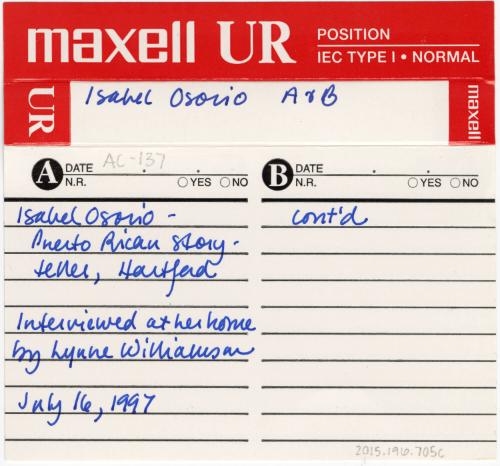 maxell UR POSITION
IEC TYPE I • NORMAL
UR Isabel Osorio A & B maxell
A DATE AC-137 . .
N.R. ○YES ○NO
Isabel Osorio -
Puerto Rican story-
teller, Hartford
Interviewed at her home
by Lynne Williamson
July 16, 1997
B DATE . .
N.R. ○YES ○NO
cont'd
2015.196.705c